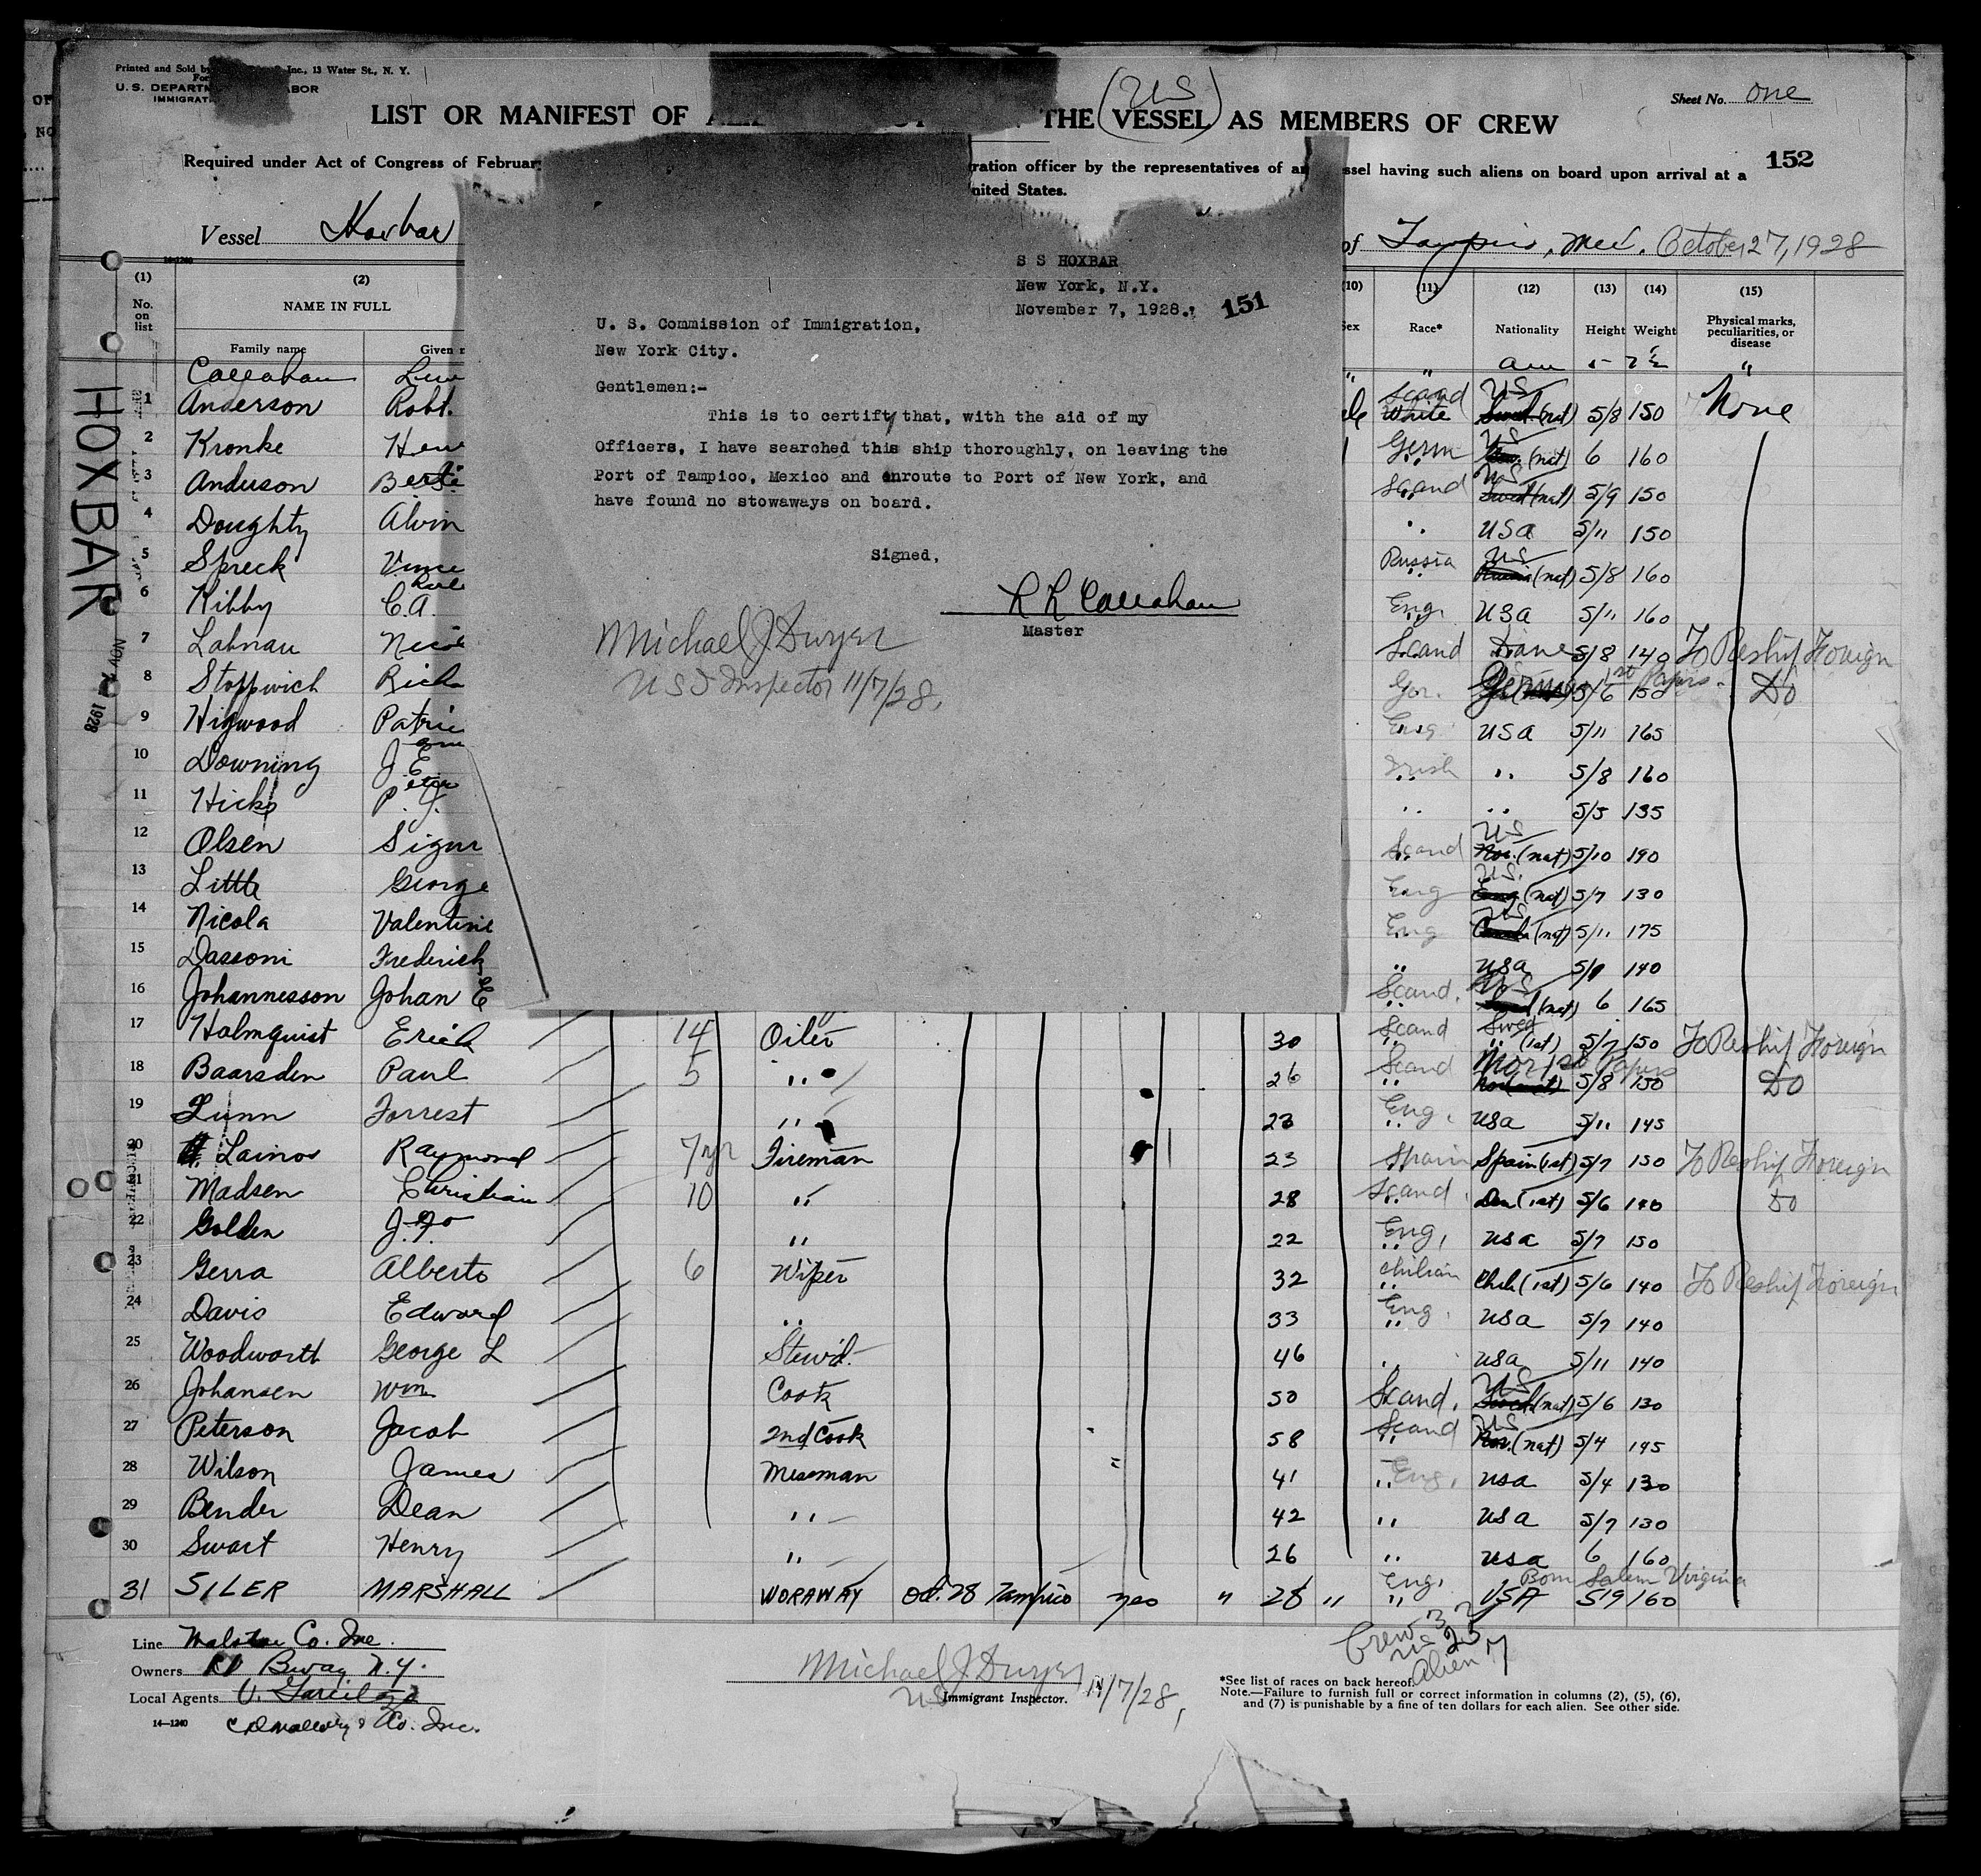 Printed and Sold by Inc., 13 Water St., N. Y.
U. S. DEPARTM ABOR
IMMIGRAT
Sheet No. one
LIST OR MANIFEST OF THE (VESSEL) AS MEMBERS OF CREW
(US)
152
Required under Act of Congress of Februar ration officer by the representatives of an ssel having such aliens on board upon arrival at a
nited States.
Vessel Hoxbar of Tampico, Mex. October 27, 1928
S S HOXBAR
New York, N.Y.
November 7, 1928. 151
U. S. Commission of Immigration,
New York City.
Gentlemen:-
This is to certify that, with the aid of my
Officers, I have searched this ship thoroughly, on leaving the
Port of Tampico, Mexico and enroute to Port of New York, and
have found no stowaways on board.
Signed,
Callahan
Master
Michael J Dwyer
U S I Inspector 11/7/28.
HOXBAR
NOV 1928
(1) (2) (10) (11) (12) (13) (14) (15)
No. on list NAME IN FULL Sex Race* Nationality Height Weight Physical marks, peculiarities, or disease
Family name Given n
Callahan am "
1 Anderson Robt. Scand White US (nat) 5/8 150 None
2 Kronke Hen Germ US (nat) 6 160
3 Anderson Scand US (nat) 5/9 150
4 Doughty Alvin USA 5/11 150
5 Spreck Vince Russia US (nat) 5/8 160
6 Kibby C.A. Eng. USA 5/11 160
7 Lahnau Nico Scand Dane 5/8 140 To Reship Foreign
8 Stoppwich Richa Ger. German 1st Papers 5/6 150 Do
9 Higwood Patric Eng USA 5/11 165
10 Downing J. E. Irish " 5/8 160
11 Hicks P. J. " " 5/5 135
12 Olsen Sigur Scand US Nor. (nat) 5/10 190
13 Little George Eng US. Eng (nat) 5/7 130
14 Nicola Valentine Eng US (nat) 5/11 175
15 Dassoni Frederick " USA 140
16 Johannesson Johan E Scand. US (nat) 6 165
17 Holmquist Erick 14 Oiler 30 Scand Swed " (1st) 5/7 150 To Reship Foreign
18 Baarsden Paul 5 " 26 Scand Nor 1st Papers 5/8 150 Do
19 Lunn Forrest " 23 Eng. USA 5/11 145
20 Lainos Raymond 7yr Fireman 23 Spain Spain (1st) 5/7 150 To Reship Foreign
21 Madsen Christian 10 " 28 Scand. Den (1st) 5/6 140 Do
22 Golden J. " 22 Eng. USA 5/7 150
23 Gerra Alberto 6 Wiper 32 Chilian Chile (1st) 5/6 140 To Reship Foreign
24 Davis Edward " 33 Eng. USA 5/7 140
25 Woodworth George L Stew'd. 46 " USA 5/11 140
26 Johansen Wm Cook 50 Scand. US Swed (nat) 5/6 130
27 Peterson Jacob 2nd Cook 58 Scand US Nor. (nat) 5/4 145
28 Wilson James Messman 41 " Eng. USA 5/4 130
29 Bender Dean " 42 " USA 5/7 130
30 Swart Henry " 26 " USA 6 160
Born Salem Virginia
31 SILER MARSHALL WORAWAY Oct. 28 Tampico yes " 28 " Eng. " USA 5'9 160
Crew 32
US 25
Alien 7
Line Co. Inc.
Owners Bway N.Y.
Local Agents
& Co. Inc.
14—1240
Michael J Dwyer 11/7/28,
US Immigrant Inspector.
*See list of races on back hereof.
Note.—Failure to furnish full or correct information in columns (2), (5), (6),
and (7) is punishable by a fine of ten dollars for each alien. See other side.